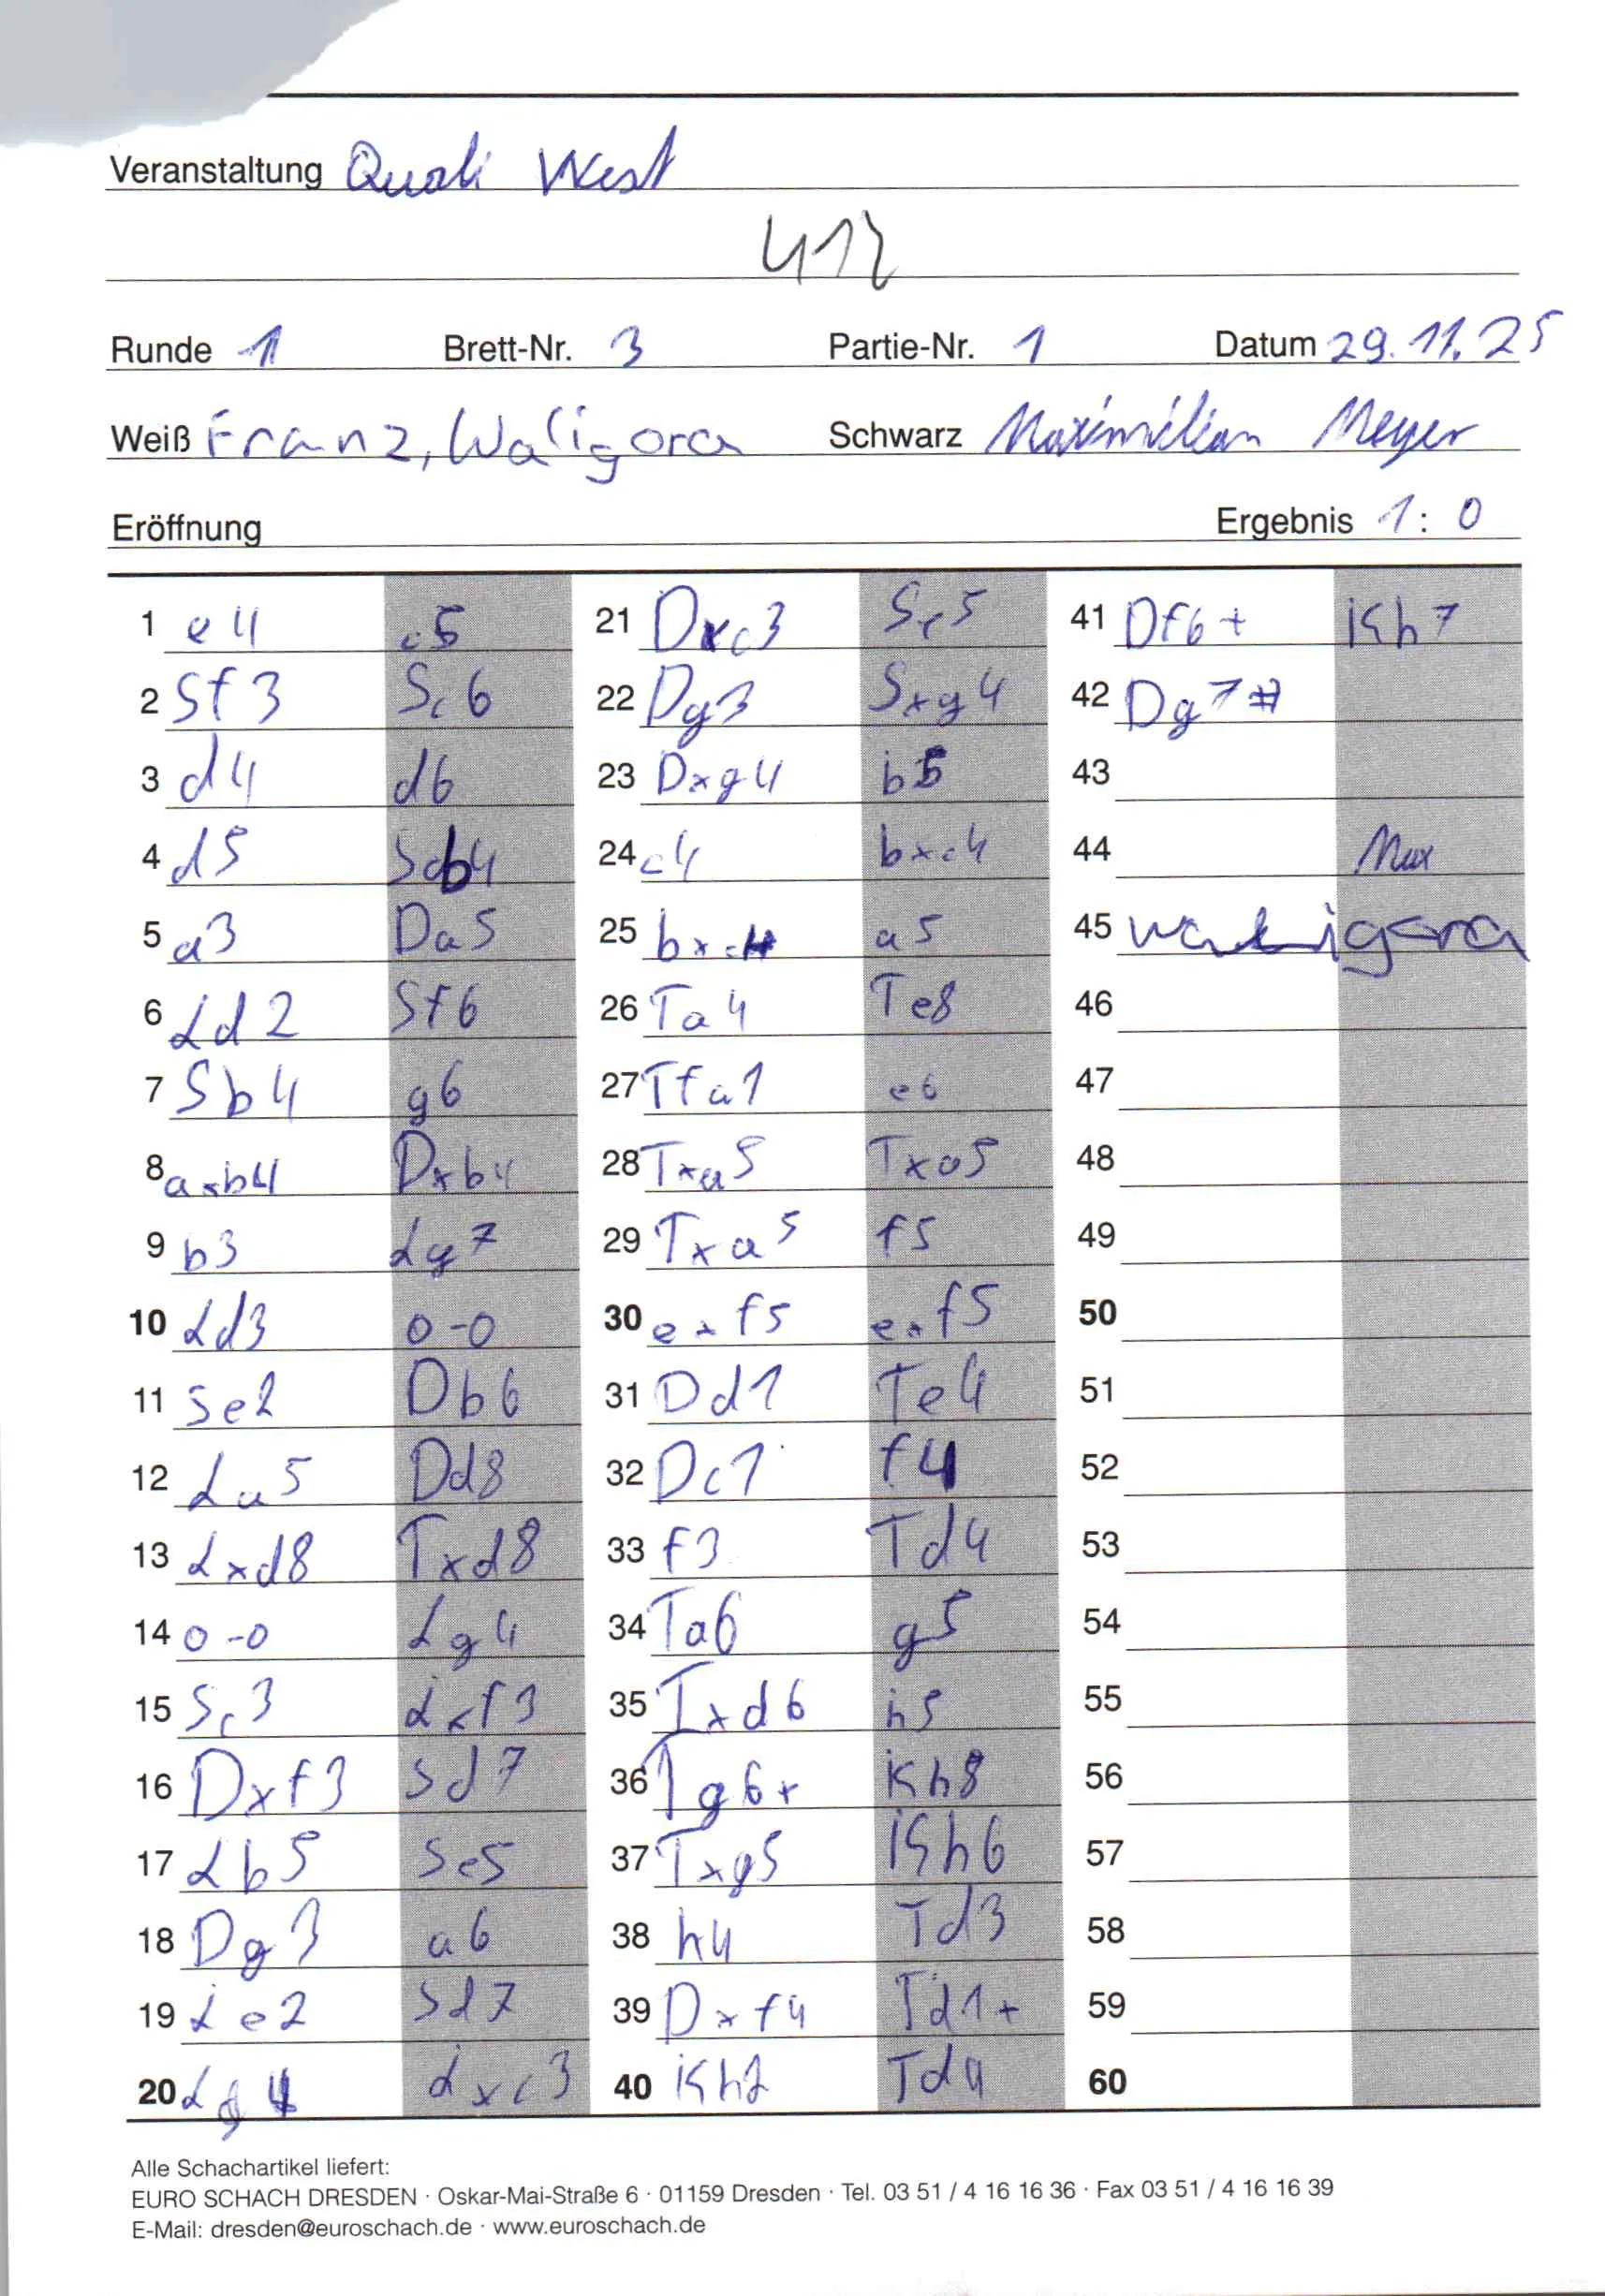 Veranstaltung Quali West
412
Runde 1 Brett-Nr. 3 Partie-Nr. 1 Datum 29.11.25
Weiß Franz, Waligora Schwarz Maximilian Meyer
Eröffnung Ergebnis 1:0
1 e4 c5 21 Dxc3 Sc5 41 Df6+ Kh7
2 Sf3 Sc6 22 Dg3 Sxg4 42 Dg7#
3 d4 d6 23 Dxg4 b5 43
4 d5 Scb4 24 c4 bxc4 44 Max
5 a3 Da5 25 bxc4 a5 45 Waligora
6 Ld2 Sf6 26 Ta4 Te8 46
7 Sb4 g6 27 Tfa1 e6 47
8 axb4 Dxb4 28 Txa5 Txa5 48
9 b3 Lg7 29 Txa5 f5 49
10 Ld3 0-0 30 exf5 exf5 50
11 Se2 Db6 31 Dd1 Te4 51
12 La5 Dd8 32 Dc1 f4 52
13 Lxd8 Txd8 33 f3 Td4 53
14 0-0 Lg4 34 Ta6 g5 54
15 Sc3 Lxf3 35 Txd6 h5 55
16 Dxf3 Sd7 36 Tg6+ Kh8 56
17 Lb5 Se5 37 Txg5 Kh6 57
18 Dg3 a6 38 h4 Td3 58
19 Le2 Sd7 39 Dxf4 Td1+ 59
20 Lg4 Lxc3 40 Kh2 Td4 60
Alle Schachartikel liefert:
EURO SCHACH DRESDEN · Oskar-Mai-Straße 6 · 01159 Dresden · Tel. 03 51 / 4 16 16 36 · Fax 03 51 / 4 16 16 39
E-Mail: dresden@euroschach.de · www.euroschach.de